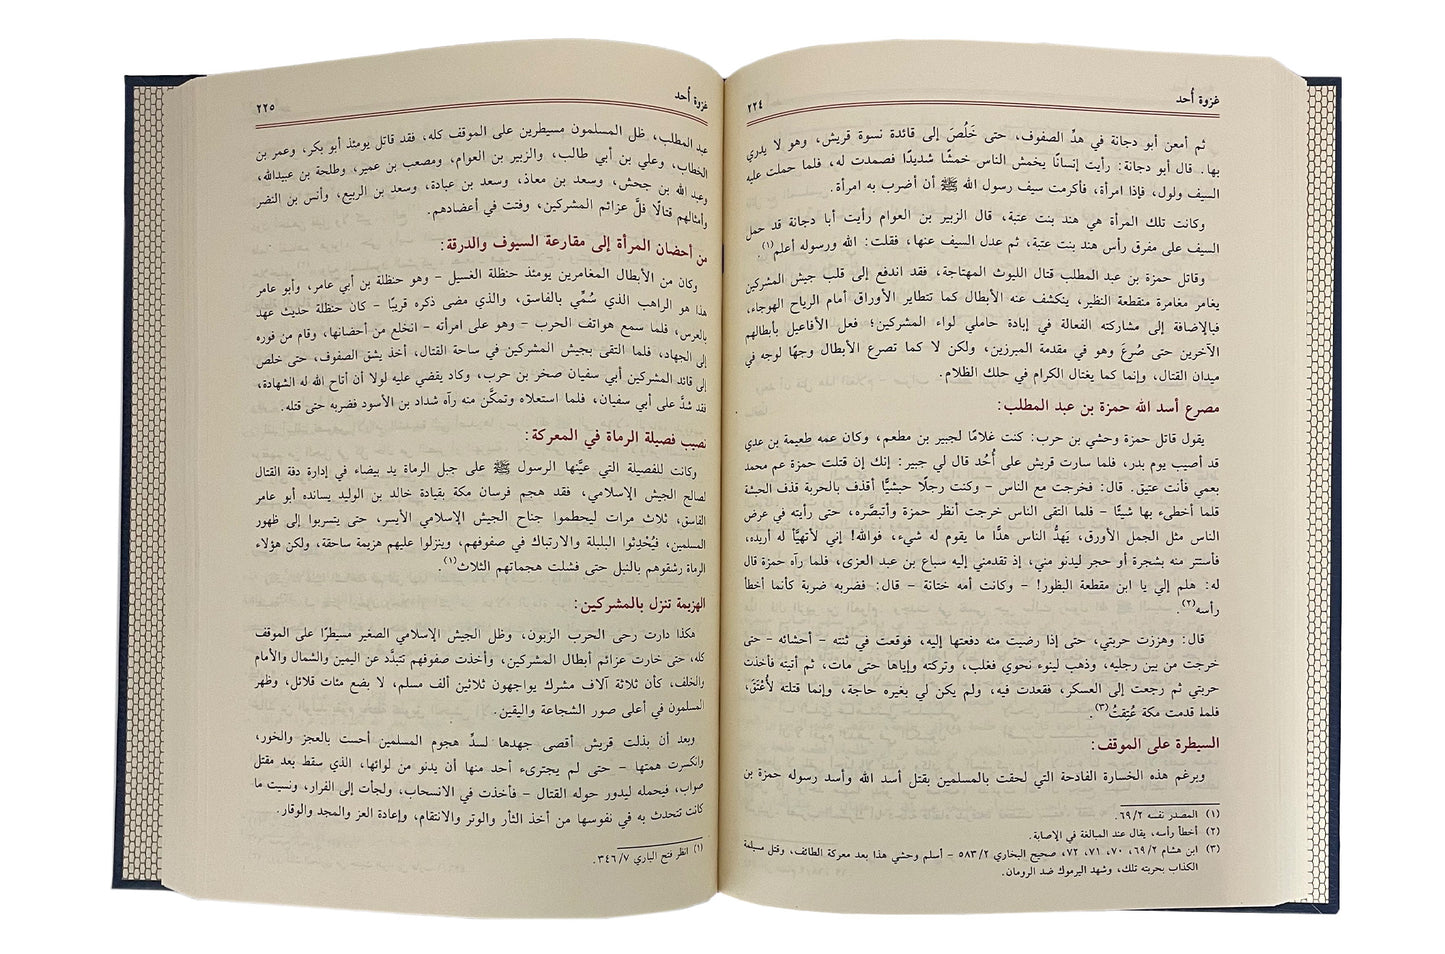 غزوة أُحد
٢٢٤
ثم أمعن أبو دجانة في هدِّ الصفوف، حتى خَلُصَ إلى قائدة نسوة قريش، وهو لا يدري
بها. قال أبو دجانة: رأيت إنسانًا يخمش الناس خمشًا شديدًا فصمدت له، فلما حملت عليه
السيف ولول، فإذا امرأة، فأكرمت سيف رسول الله ﷺ أن أضرب به امرأة.
وكانت تلك المرأة هي هند بنت عتبة، قال الزبير بن العوام رأيت أبا دجانة قد حمل
السيف على مفرق رأس هند بنت عتبة، ثم عدل السيف عنها، فقلت: الله ورسوله أعلم(١).
وقاتل حمزة بن عبد المطلب قتال الليوث المهتاجة، فقد اندفع إلى قلب جيش المشركين
يغامر مغامرة منقطعة النظير، ينكشف عنه الأبطال كما تتطاير الأوراق أمام الرياح الهوجاء،
فبالإضافة إلى مشاركته الفعالة في إبادة حاملي لواء المشركين؛ فعل الأفاعيل بأبطالهم
الآخرين حتى صُرِعَ وهو في مقدمة المبرزين، ولكن لا كما تصرع الأبطال وجهًا لوجه في
ميدان القتال، وإنما كما يغتال الكرام في حلك الظلام.
مصرع أسد الله حمزة بن عبد المطلب:
يقول قاتل حمزة وحشي بن حرب: كنت غلامًا لجبير بن مطعم، وكان عمه طعيمة بن عدي
قد أصيب يوم بدر، فلما سارت قريش على أُحُد قال لي جبير: إنك إن قتلت حمزة عم محمد
بعمي فأنت عتيق. قال: فخرجت مع الناس – وكنت رجلًا حبشيًّا أقذف بالحربة قذف الحبشة
قلما أخطىء بها شيئًا – فلما التقى الناس خرجت أنظر حمزة وأتبصَّره، حتى رأيته في عرض
الناس مثل الجمل الأورق، يَهدُّ الناس هذًّا ما يقوم له شيء، فوالله! إني لأتهيَّأ له أريده،
فأستتر منه بشجرة أو حجر ليدنو مني، إذ تقدمني إليه سباع بن عبد العزى، فلما رآه حمزة قال
له: هلم إلي يا ابن مقطعة البظور! – وكانت أمه ختانة – قال: فضربه ضربة كأنما أخطأ
رأسه(٢).
قال: وهززت حربتي، حتى إذا رضيت منه دفعتها إليه، فوقعت في ثنته – أحشائه – حتى
خرجت من بين رجليه، وذهب لينوء نحوي فغلب، وتركته وإياها حتى مات، ثم أتيته فأخذت
حربتي ثم رجعت إلى العسكر، فقعدت فيه، ولم يكن لي بغيره حاجة، وإنما قتلته لأُعْتَقَ،
فلما قدمت مكة عُتِقتُ(٣).
السيطرة على الموقف:
وبرغم هذه الخسارة الفادحة التي لحقت بالمسلمين بقتل أسد الله وأسد رسوله حمزة بن
(١) المصدر نفسه ٦٩/٢.
(٢) أخطأ رأسه، يقال عند المبالغة في الإصابة.
(٣) ابن هشام ٦٩/٢، ٧٠، ٧١، ٧٢، صحيح البخاري ٥٨٣/٢ – أسلم وحشي هذا بعد معركة الطائف، وقتل مسيلمة
الكذاب بحربته تلك، وشهد اليرموك ضد الرومان.
غزوة أُحد
٢٢٥
عبد المطلب، ظل المسلمون مسيطرين على الموقف كله، فقد قاتل يومئذ أبو بكر، وعمر بن
الخطاب، وعلي بن أبي طالب، والزبير بن العوام، ومصعب بن عمير، وطلحة بن عبيدالله،
وعبد الله بن جحش، وسعد بن معاذ، وسعد بن عبادة، وسعد بن الربيع، وأنس بن النضر
وأمثالهم قتالًا فلَّ عزائم المشركين، وفتت في أعضادهم.
من أحضان المرأة إلى مقارعة السيوف والدرقة:
وكان من الأبطال المغامرين يومئذ حنظلة الغسيل – وهو حنظلة بن أبي عامر، وأبو عامر
هذا هو الراهب الذي سُمِّي بالفاسق، والذي مضى ذكره قريبًا – كان حنظلة حديث عهد
بالعرس، فلما سمع هواتف الحرب – وهو على امرأته – انخلع من أحضانها، وقام من فوره
إلى الجهاد، فلما التقى بجيش المشركين في ساحة القتال، أخذ يشق الصفوف، حتى خلص
إلى قائد المشركين أبي سفيان صخر بن حرب، وكاد يقضي عليه لولا أن أتاح الله له الشهادة،
فقد شدَّ على أبي سفيان، فلما استعلاه وتمكَّن منه رآه شداد بن الأسود فضربه حتى قتله.
نصيب فصيلة الرماة في المعركة:
وكانت للفصيلة التي عيَّنها الرسول ﷺ على جبل الرماة يد بيضاء في إدارة دفة القتال
لصالح الجيش الإسلامي، فقد هجم فرسان مكة بقيادة خالد بن الوليد يسانده أبو عامر
الفاسق، ثلاث مرات ليحطموا جناح الجيش الإسلامي الأيسر، حتى يتسربوا إلى ظهور
المسلمين، فيُحْدِثوا البلبلة والارتباك في صفوفهم، وينزلوا عليهم هزيمة ساحقة، ولكن هؤلاء
الرماة رشقوهم بالنبل حتى فشلت هجماتهم الثلاث(١).
الهزيمة تنزل بالمشركين:
هكذا دارت رحى الحرب الزبون، وظل الجيش الإسلامي الصغير مسيطرًا على الموقف
كله، حتى خارت عزائم أبطال المشركين، وأخذت صفوفهم تتبدَّد عن اليمين والشمال والأمام
والخلف، كأن ثلاثة آلاف مشرك يواجهون ثلاثين ألف مسلم، لا بضع مئات قلائل، وظهر
المسلمون في أعلى صور الشجاعة واليقين.
وبعد أن بذلت قريش أقصى جهدها لسدِّ هجوم المسلمين أحست بالعجز والخور،
وانكسرت همتها – حتى لم يجترىء أحد منها أن يدنو من لوائها، الذي سقط بعد مقتل
صواب، فيحمله ليدور حوله القتال – فأخذت في الانسحاب، ولجأت إلى الفرار، ونسيت ما
كانت تتحدث به في نفوسها من أخذ الثأر والوتر والانتقام، وإعادة العز والمجد والوقار.
(١) انظر فتح الباري ٣٤٦/٧.